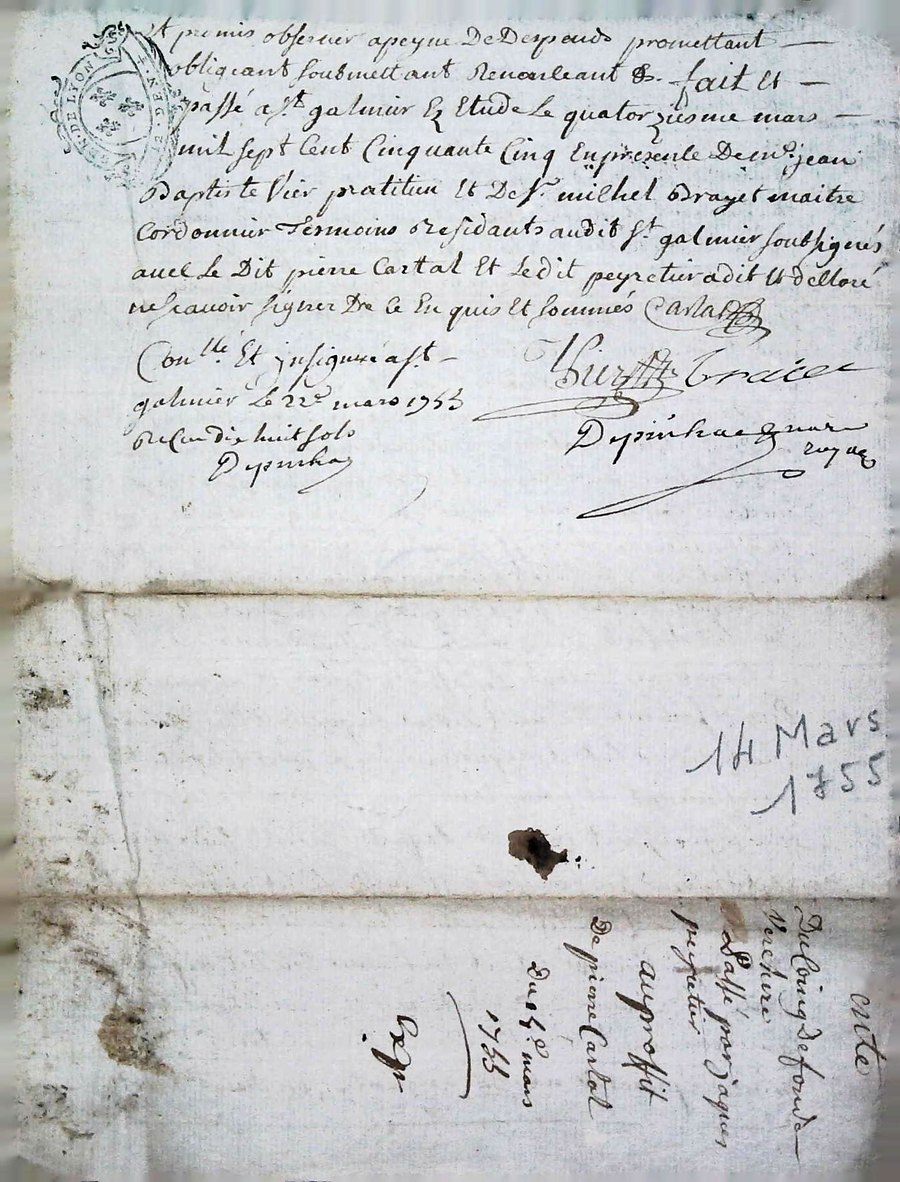 et promis observer apeyne De Despends promettant
obligeant soubmettant Renonceant &. fait et
passé a St. galmier Ez Etude Le quatorziesme mars
mil sept Cent Cinquante Cinq En presence De mr. jean
Baptiste Vier pratitien Et De Sr. michel Brayet maitre
Cordonnier Temoins Residants audit St galmier soubsignés
avec Le Dit pierre Cartal Et Ledit peyretier a dit et declaré
ne scavoir signer De Ce Enquis Et sommés Cartal
Conllé Et jnsignué a St.
Vier Braiet
galmier Le 22e. mars 1755
Recu dix huit sols
Depinhac
Depinhac
royal
14 Mars
1755
Vente
De fonds
Verchere
Passé par jaques
peyretier
au proffit
De pierre Cartal
Du 14e. mars
1755
Exp.